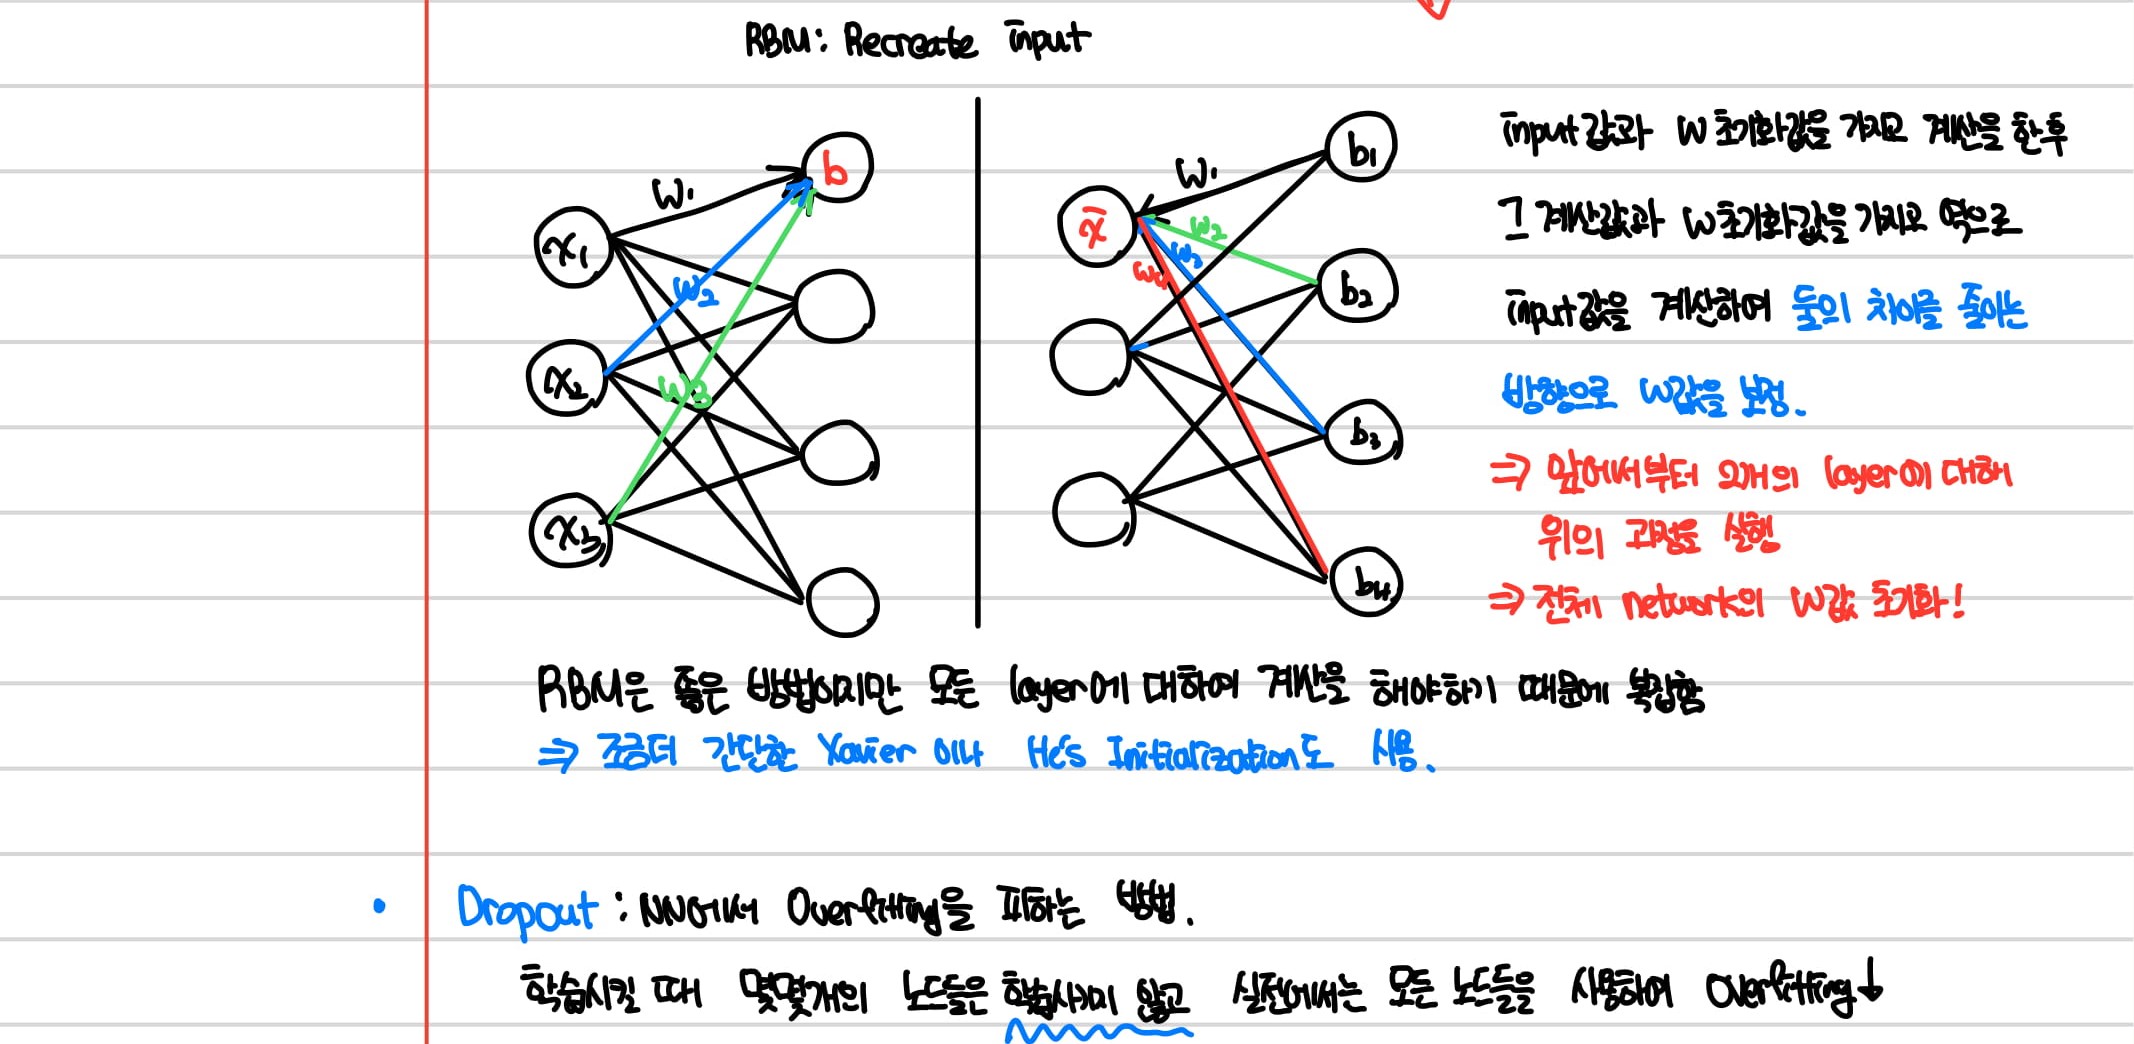 RBM: Recreate input
W₁
b
x₁
W₂
x₂
W₃
x₃
W₁
b₁
x̄
W₂
W₃
W₄
b₂
b₃
b₄
input값과 W초기화값을 가지고 계산을 한후
그 계산값과 W초기화값을 가지고 역으로
input값을 계산하여 둘의 차이를 줄이는
방향으로 W값을 보정.
⇒ 앞에서부터 2개의 layer에 대해
위의 과정을 실행
⇒ 전체 network의 W값 초기화!
RBM은 좋은 방법이지만 모든 layer에 대하여 계산을 해야하기 때문에 복잡함
⇒ 조금더 간단한 Xavier 이나 He's Initialization도 사용.
• Dropout : NN에서 Overfitting을 피하는 방법.
학습시킬 때 몇몇개의 노드들은 학습시키지 않고 실전에서는 모든 노드들을 사용하여 Overfitting↓